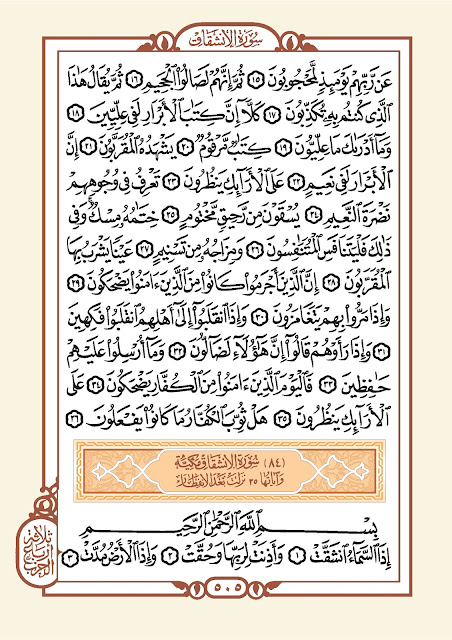 سُورَةُ الْإِنْشِقَاقِ
عَن رَّبِّهِمْ يَوْمَئِذٍ لَّمَحْجُوبُونَ ١٥ ثُمَّ إِنَّهُمْ لَصَالُوا۟ الْجَحِيمِ ١٦ ثُمَّ يُقَالُ هَٰذَا
الَّذِى كُنتُم بِهِۦ تُكَذِّبُونَ ١٧ كَلَّآ إِنَّ كِتَٰبَ الْأَبْرَارِ لَفِى عِلِّيِّينَ ١٨
وَمَآ أَدْرَىٰكَ مَا عِلِّيُّونَ ١٩ كِتَٰبٌ مَّرْقُومٌ ٢٠ يَشْهَدُهُ الْمُقَرَّبُونَ ٢١ إِنَّ
الْأَبْرَارَ لَفِى نَعِيمٍ ٢٢ عَلَى الْأَرَآئِكِ يَنظُرُونَ ٢٣ تَعْرِفُ فِى وُجُوهِهِمْ
نَضْرَةَ النَّعِيمِ ٢٤ يُسْقَوْنَ مِن رَّحِيقٍ مَّخْتُومٍ ٢٥ خِتَٰمُهُۥ مِسْكٌ وَفِى
ذَٰلِكَ فَلْيَتَنَافَسِ الْمُتَنَٰفِسُونَ ٢٦ وَمِزَاجُهُۥ مِن تَسْنِيمٍ ٢٧ عَيْنًا يَشْرَبُ بِهَا
الْمُقَرَّبُونَ ٢٨ إِنَّ الَّذِينَ أَجْرَمُوا۟ كَانُوا۟ مِنَ الَّذِينَ ءَامَنُوا۟ يَضْحَكُونَ ٢٩
وَإِذَا مَرُّوا۟ بِهِمْ يَتَغَامَزُونَ ٣٠ وَإِذَا انقَلَبُوٓا۟ إِلَىٰٓ أَهْلِهِمُ انقَلَبُوا۟ فَكِهِينَ
٣١ وَإِذَا رَأَوْهُمْ قَالُوٓا۟ إِنَّ هَٰٓؤُلَآءِ لَضَآلُّونَ ٣٢ وَمَآ أُرْسِلُوا۟ عَلَيْهِمْ
حَٰفِظِينَ ٣٣ فَالْيَوْمَ الَّذِينَ ءَامَنُوا۟ مِنَ الْكُفَّارِ يَضْحَكُونَ ٣٤ عَلَى
الْأَرَآئِكِ يَنظُرُونَ ٣٥ هَلْ ثُوِّبَ الْكُفَّارُ مَا كَانُوا۟ يَفْعَلُونَ ٣٦
(٨٤) سُورَةُ الْإِنْشِقَاقِ مَكِّيَّةٌ
وَآيَاتُهَا ٢٥ نَزَلَتْ بَعْدَ الْإِنْفِطَارِ
بِسْمِ اللَّهِ الرَّحْمَٰنِ الرَّحِيمِ
إِذَا السَّمَآءُ انشَقَّتْ ١ وَأَذِنَتْ لِرَبِّهَا وَحُقَّتْ ٢ وَإِذَا الْأَرْضُ مُدَّتْ ٣
ثلاثة
أرباع
الحزب
٥٠٥